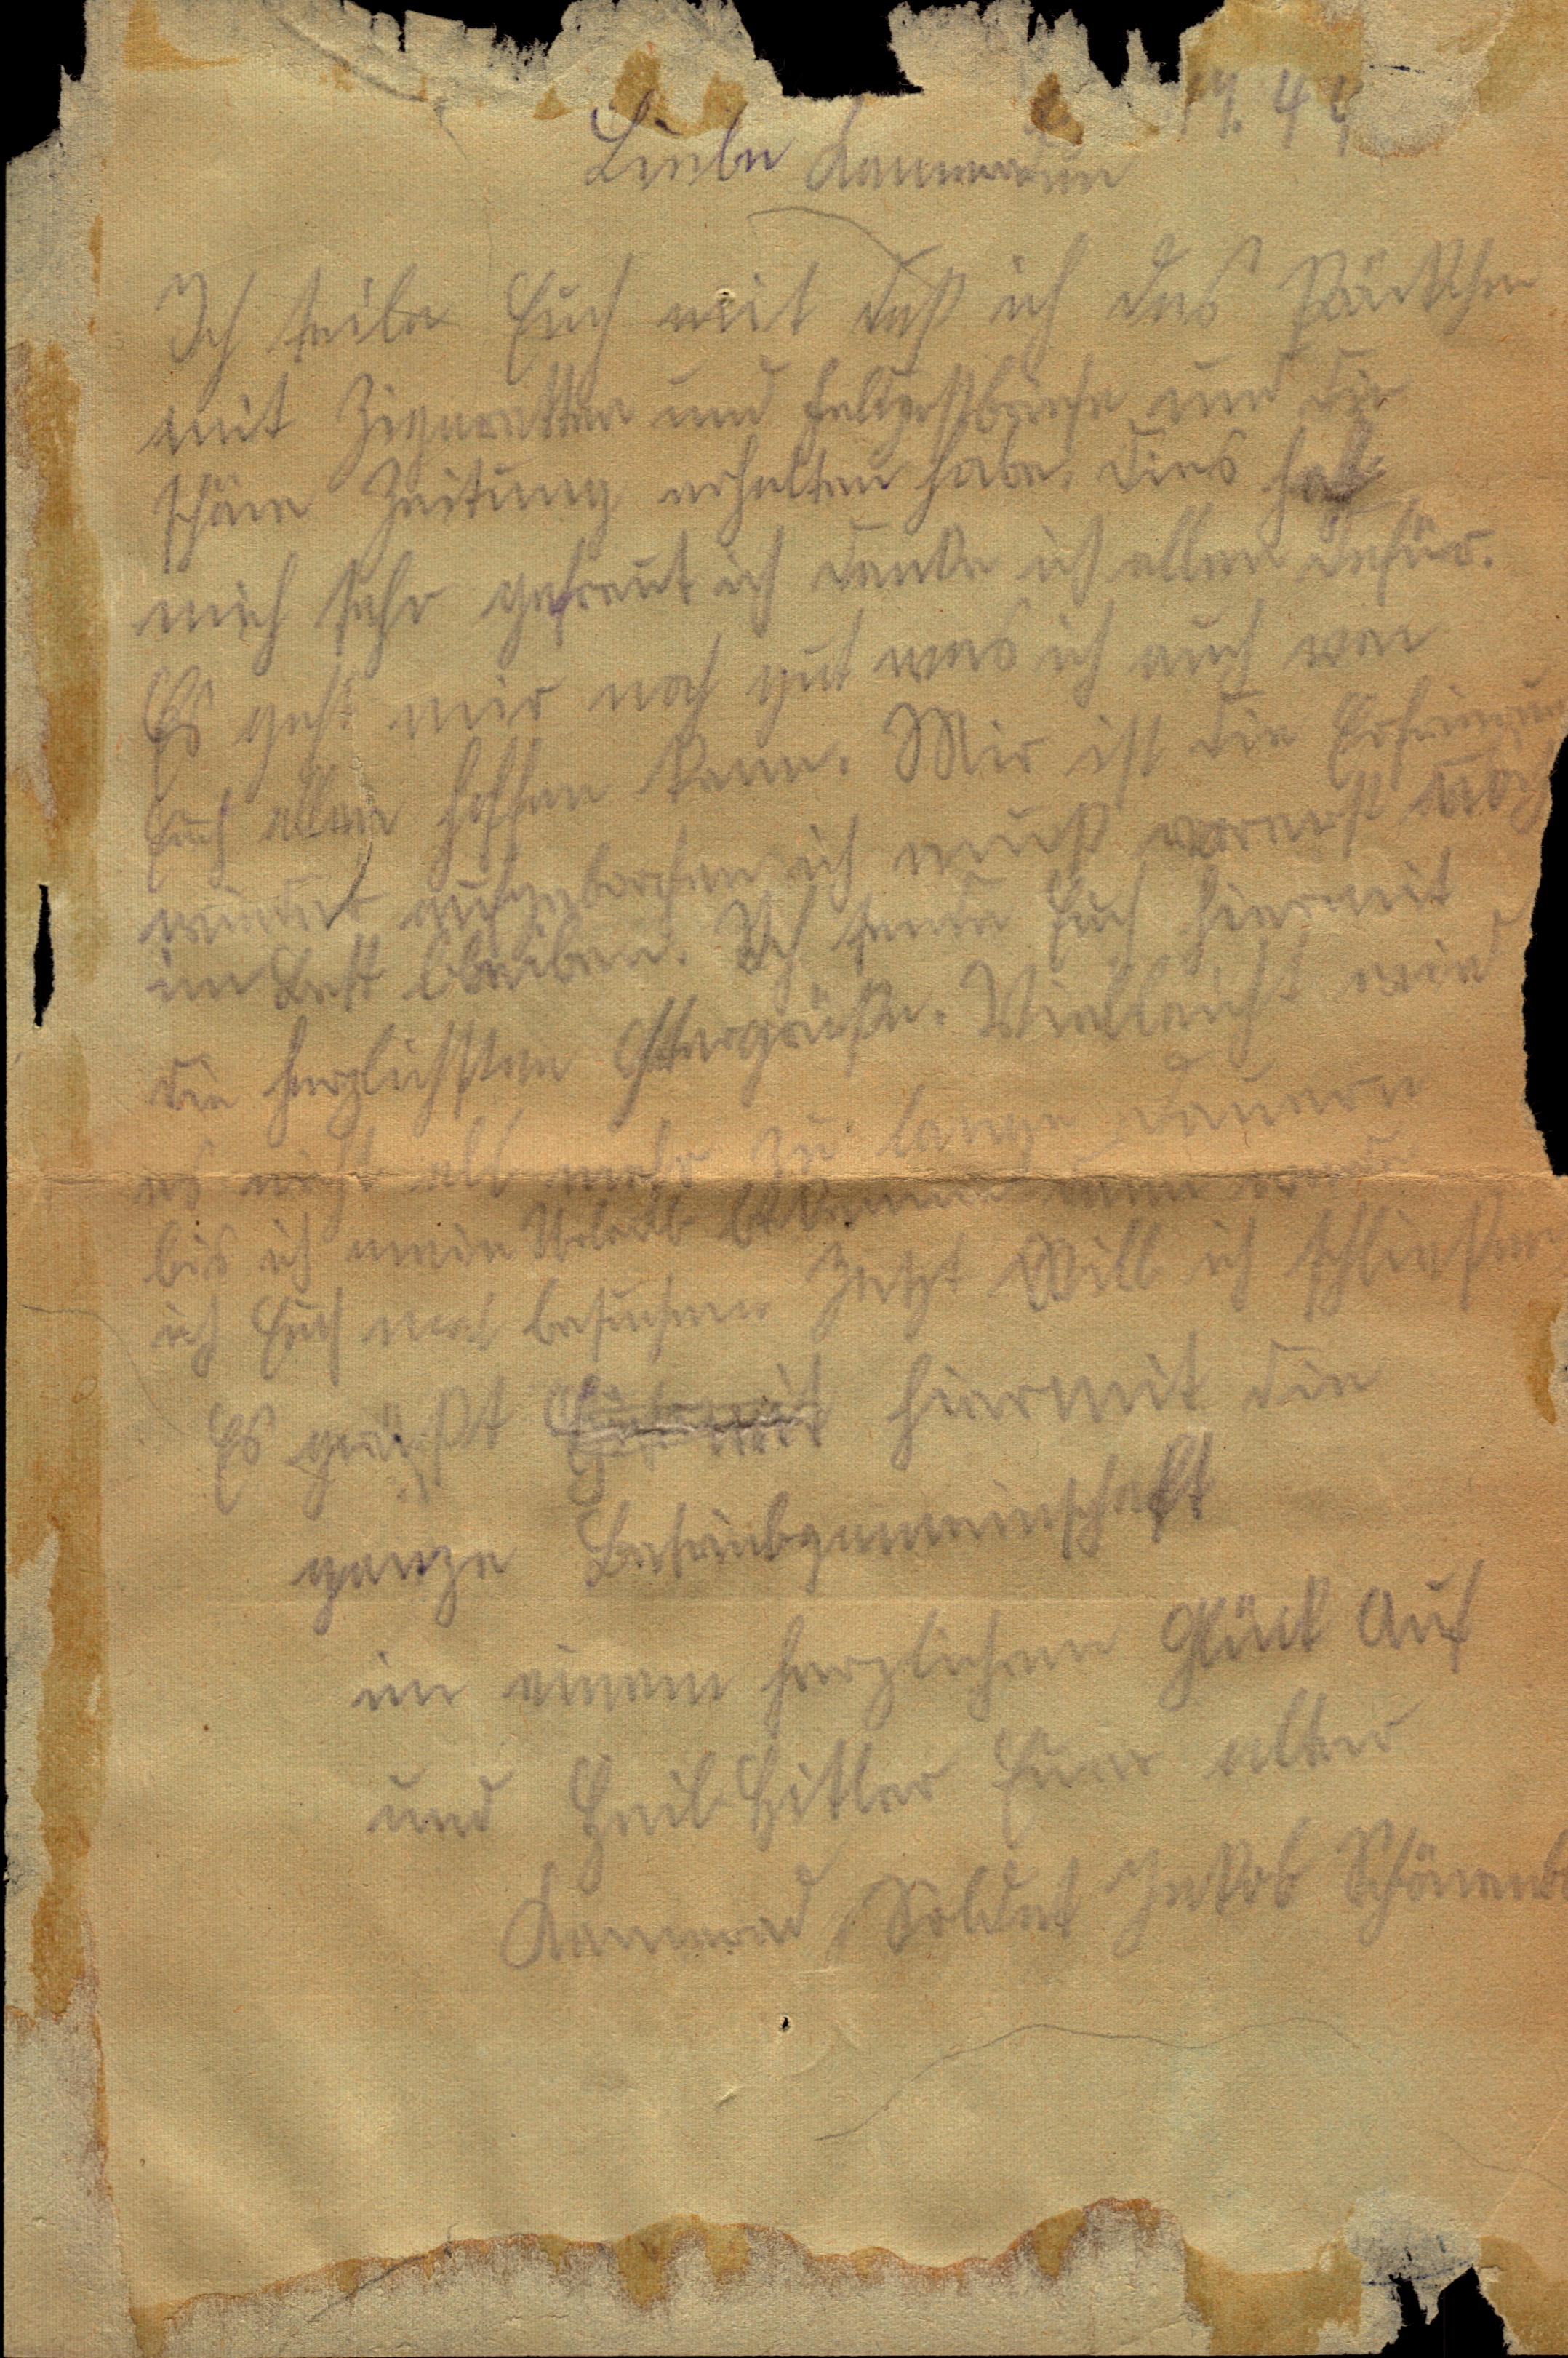 4.44
Liebe Kameraden
Ich teile Euch mit daß ich das Päckchen
mit Zigaretten und Feldpostbriefe und die
schöne Zeitung erhalten habe. Dies hat
mich sehr gefreut ich danke ich allen dafür.
Es geht mir noch gut was ich auch von
Euch allen hoffen kann. Mir ist die
wieder aufgebrochen ich muß vorerst noch
im Bett bleiben. Ich sende Euch hiermit
die herzlichsten Ostergrüße. Vielleicht wird
es nicht all mehr zu lange dauern
bis ich mein Urlaub bekomme dann werde
ich Euch mal besuchen Jetzt Will ich schließen
Es grüßt hiermit die
ganze Betriebgemeinschaft
in einem herzlichem Glück Auf
und Heil Hitler Euer alter
Kamerad Soldat Jakob